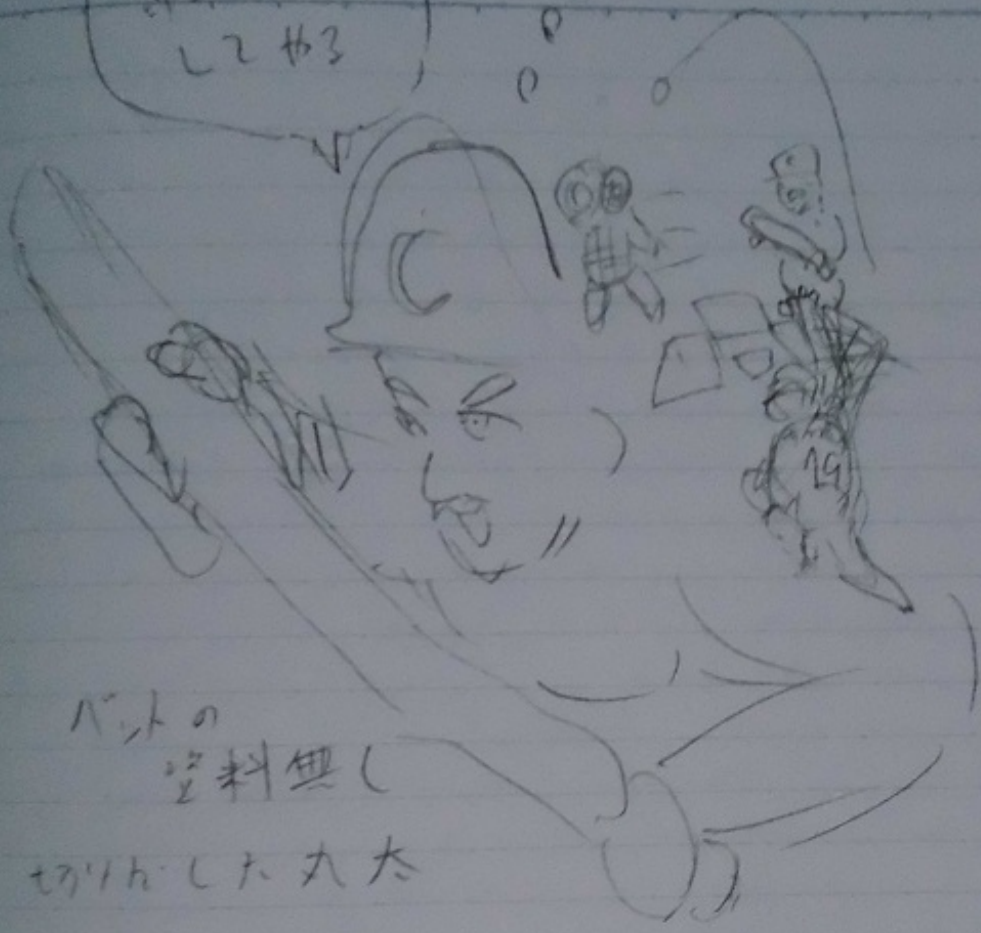 してやる
C
19
バットの
塗料無し
切りだした丸太